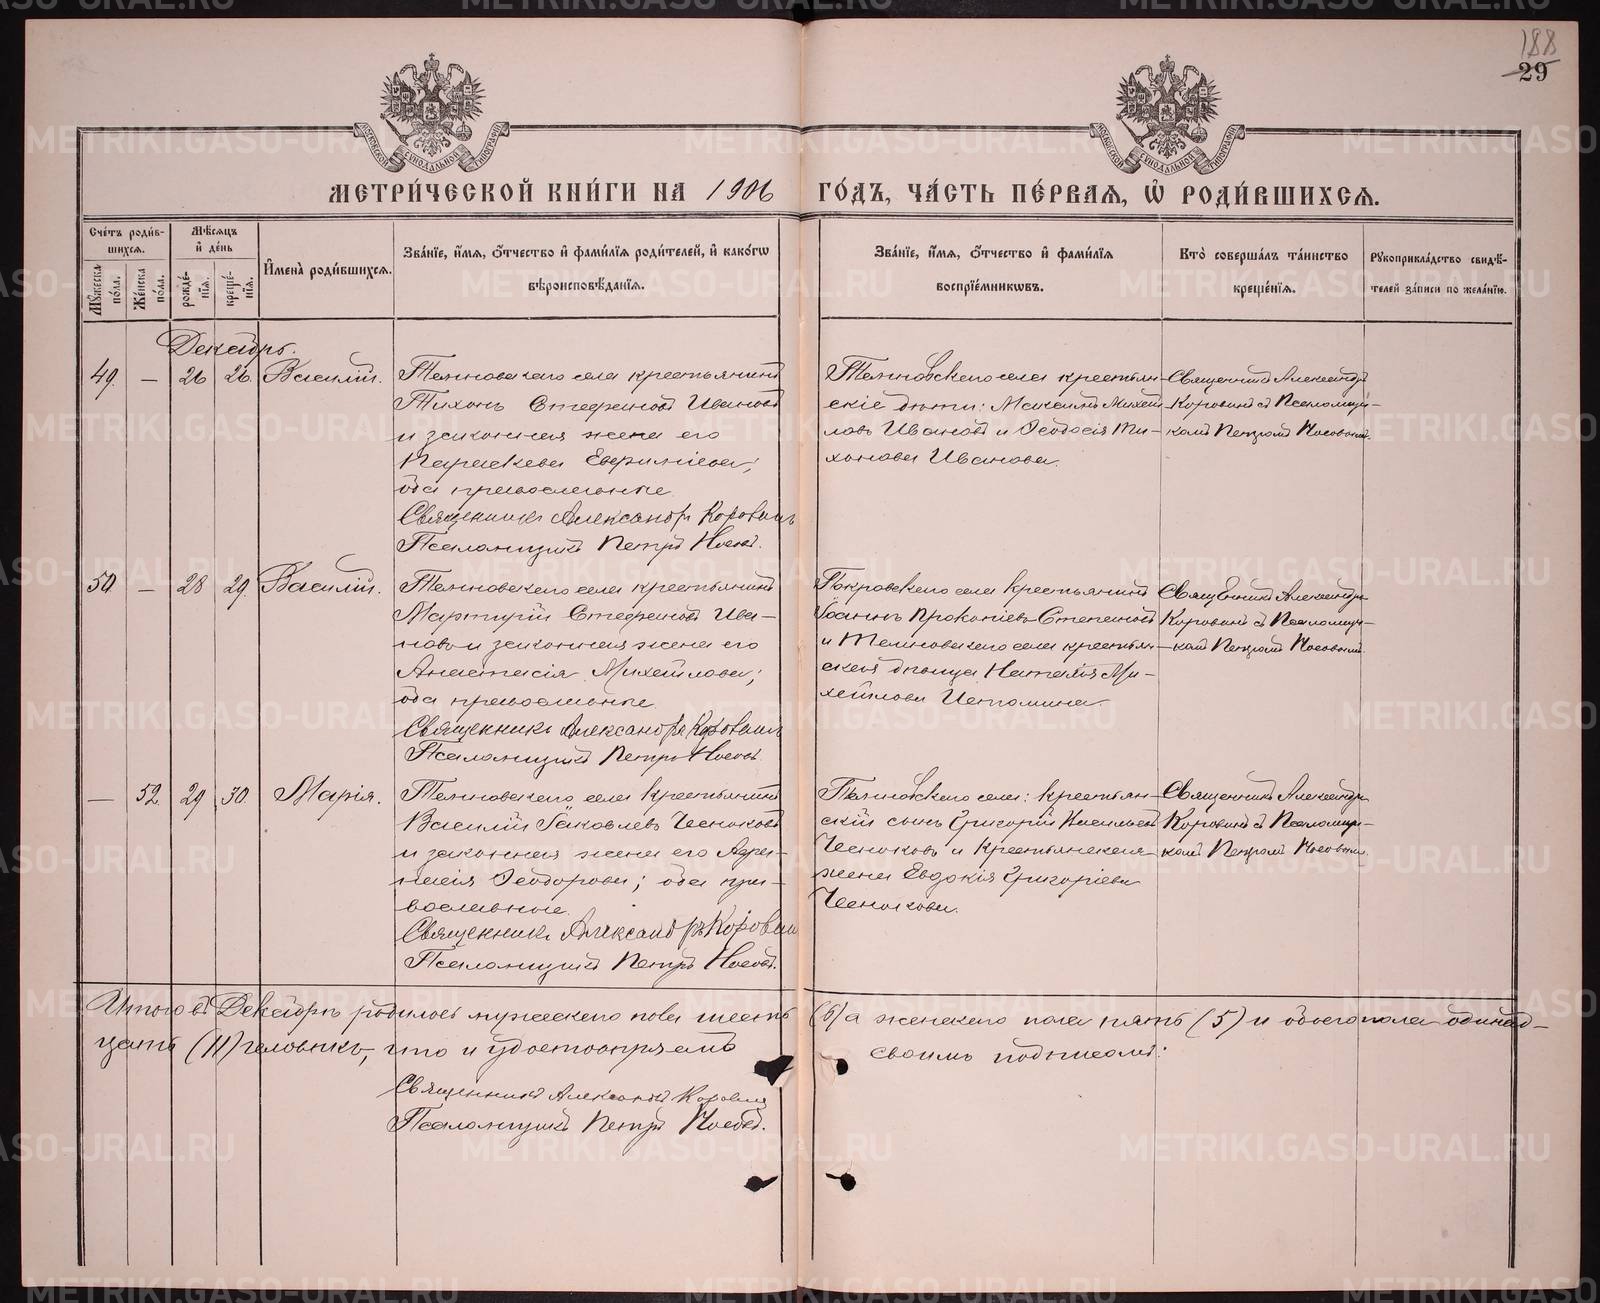 188
29
МОСКОВСКОЙ СѴНОДАЛЬНОЙ ТИПОГРАФІИ
МОСКОВСКОЙ СѴНОДАЛЬНОЙ ТИПОГРАФІИ
МЕТРИ́ЧЕСКОЙ КНИ́ГИ НА 1906 ГО́ДЪ, ЧА́СТЬ ПЕ́РВАЯ, Ѿ РОДИ́ВШИХСЯ.
Сче́тъ роди́в-
шихся.
Мѣ́сяцъ
и҆ де́нь
Мꙋ́жеска по́ла.
Же́нска по́ла.
рожде́-
нїя.
креще́-
нїя.
И҆мена̀ роди́вшихся.
Зва́нїе, и҆́мя, ѻ҆́тчество и҆ фами́лїя роди́телей, и҆ како́гѡ
вѣроисповѣ́данїя.
Зва́нїе, и҆́мя, ѻ҆́тчество и҆ фами́лїя
воспрїе́мникѡвъ.
Кто̀ соверша́лъ та́инство
креще́нїя.
Рꙋкоприкла́дство свидѣ́-
телей за́писи по жела́нїю.
Декабрь.
49. — 26 26. Василій.
села крестьянинъ
Тихонъ Стефановъ Ивановъ
и законная жена его
Параскева
оба православные
Священникъ Александръ Коровинъ
Псаломщикъ Петръ Носовъ.
села крестьян-
скіе дѣти: Максимъ Михай-
ловъ Ивановъ и Ѳеодосія Ти-
хонова Иванова.
Священникъ Александръ
Коровинъ съ Псаломщи-
комъ Петромъ Носовымъ.
50. — 28 29. Василій.
села крестьянинъ
Мартирій Стефановъ Ива-
новъ и законная жена его
Анастасія Михайлова;
оба православные
Священникъ Александръ Коровинъ
Псаломщикъ Петръ Носовъ.
Покровскаго села крестьянинъ
Іоаннъ Прокопіевъ Степановъ
и села крестьян-
ская дѣвица Наталія Ми-
хайлова Истомина.
Священникъ Александръ
Коровинъ съ Псаломщи-
комъ Петромъ Носовымъ
— 52. 29 30. Марія.
села крестьянинъ
Василій Іаковлевъ Чесноковъ
и законная жена его
Ѳеодорова; оба пра-
вославные.
Священникъ Александръ Коровинъ
Псаломщикъ Петръ Носовъ.
села: крестьян-
скій сынъ Григорій Васильевъ
Чесноковъ и крестьянская
жена Евдокія Григоріева
Чеснокова.
Священникъ Александръ
Коровинъ съ Псаломщи-
комъ Петромъ Носовымъ.
Итого въ Декабрѣ родилось мужескаго пола шесть (6) а женскаго пола пять (5) и обоего пола одинад-
цать (11) человѣкъ, что и удостовѣряемъ своимъ подписомъ:
Священникъ Александръ Коровинъ
Псаломщикъ Петръ Носовъ.
METRIKI.GASO-URAL.RU